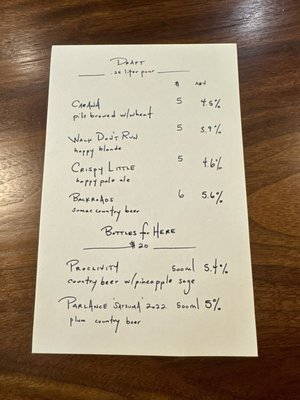 DRAFT
.25 liter pour
$ ABV
CABANA 5 4.5%
pils brewed w/wheat
WALK DON'T RUN 5 3.9%
hoppy blonde
CRISPY LITTLE 5 4.6%
hoppy pale ale
BACKROADS 6 5.6%
sumac country beer
BOTTLES for HERE
$20
PROCLIVITY 500ml 5.4%
country beer w/pineapple sage
PARLANCE 'SATSUMA' 2022 500ml 5%
plum country beer